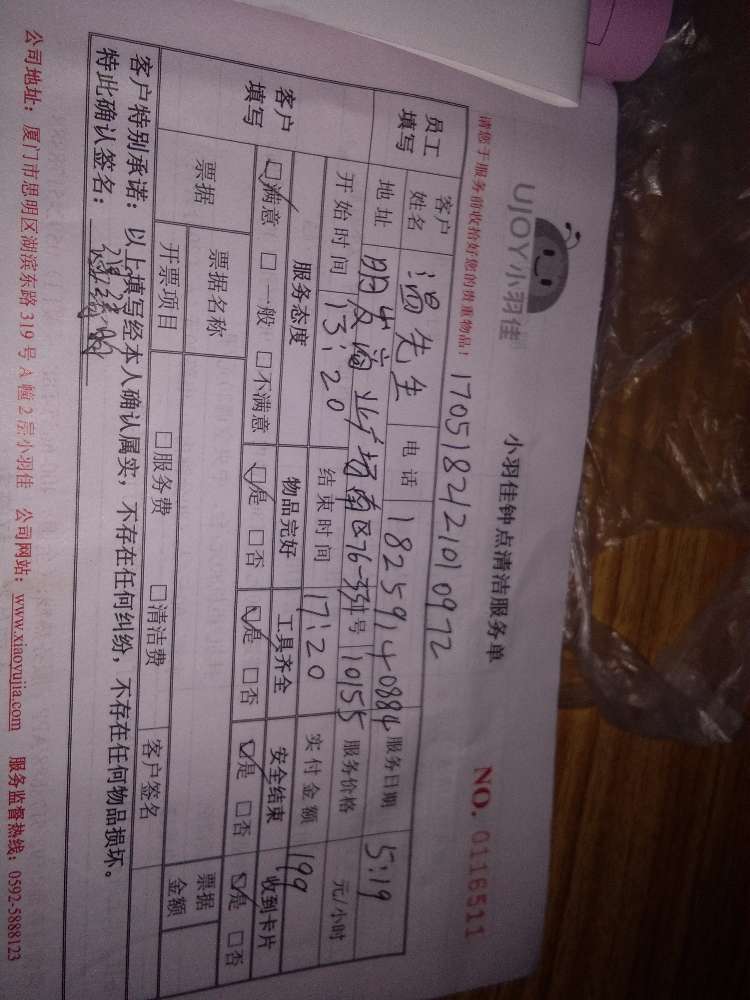 UJOY小羽佳
小羽佳钟点清洁服务单
NO. 0116511
请您于服务前收拾好您的贵重物品！
170518212101 0972
员工填写
客户姓名 温先生 电话 18259140884 服务日期 5.19
地址 明发商业广场南区76-351号 10155 服务价格 元/小时
开始时间 13:20 结束时间 17:20 实付金额 199
客户填写
服务态度 物品完好 工具齐全 安全结束 收到卡片
☑满意 □一般 □不满意 ☑是 □否 ☑是 □否 ☑是 □否 ☑是 □否
票据 票据名称 票据金额
开票项目 □服务费 □清洁费 客户签名
客户特别承诺：以上填写经本人确认属实，不存在任何纠纷，不存在任何物品损坏。
特此确认签名：
公司地址：厦门市思明区湖滨东路319号A幢2层小羽佳 公司网站：www.xiaoyujia.com 服务监督热线：0592-5888123